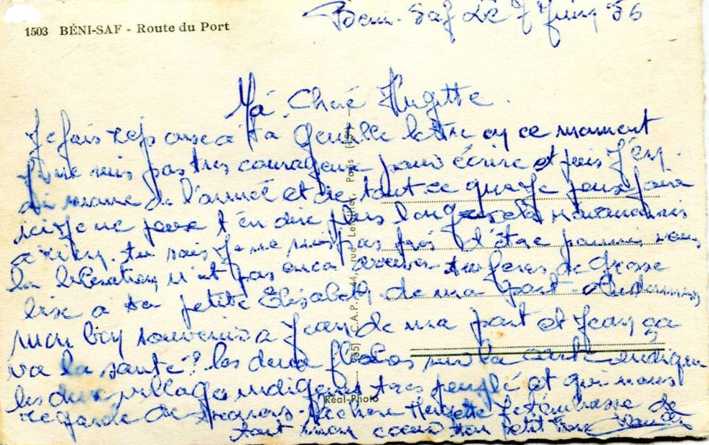 1503 BÉNI-SAF - Route du Port
Béni-Saf Le 7 Juin 56
Ma Cheré Hugette.
Je fais reponse a ta gentille lettre en ce moment
Je ne suis pas tres courageux pour écrire et puis J'en
ai marre de l'armée et de tout ce que Je peus faire
ici Je ne peux t'en dire plus long cela m'avancerais
a rien. tu sais Je ne suis pas pres d'être parmis vous
la liberation n'est pas encore tu feras de grosse
bise a ta petite Elisabeth de ma part
mon bon souvenir a Jean de ma part et Jean ça
va la santé? les deux sur la carte indique
les deux villages indigenes tres peuplé et qui nous
regarde de travers. Ma chere Je t'embrasse de
tout mon cœur ton petit frere
Réal-Photo